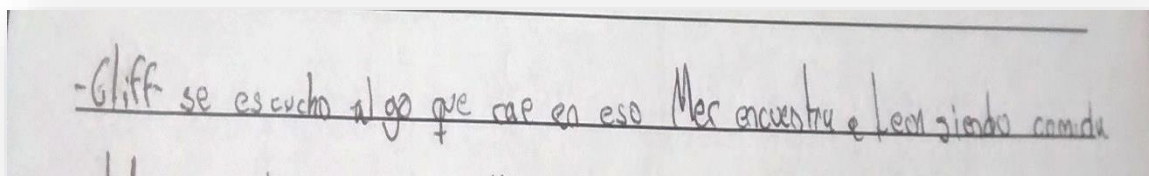 -Gliff se escucho algo que cae en eso Mer encuentra e Leon siendo comida